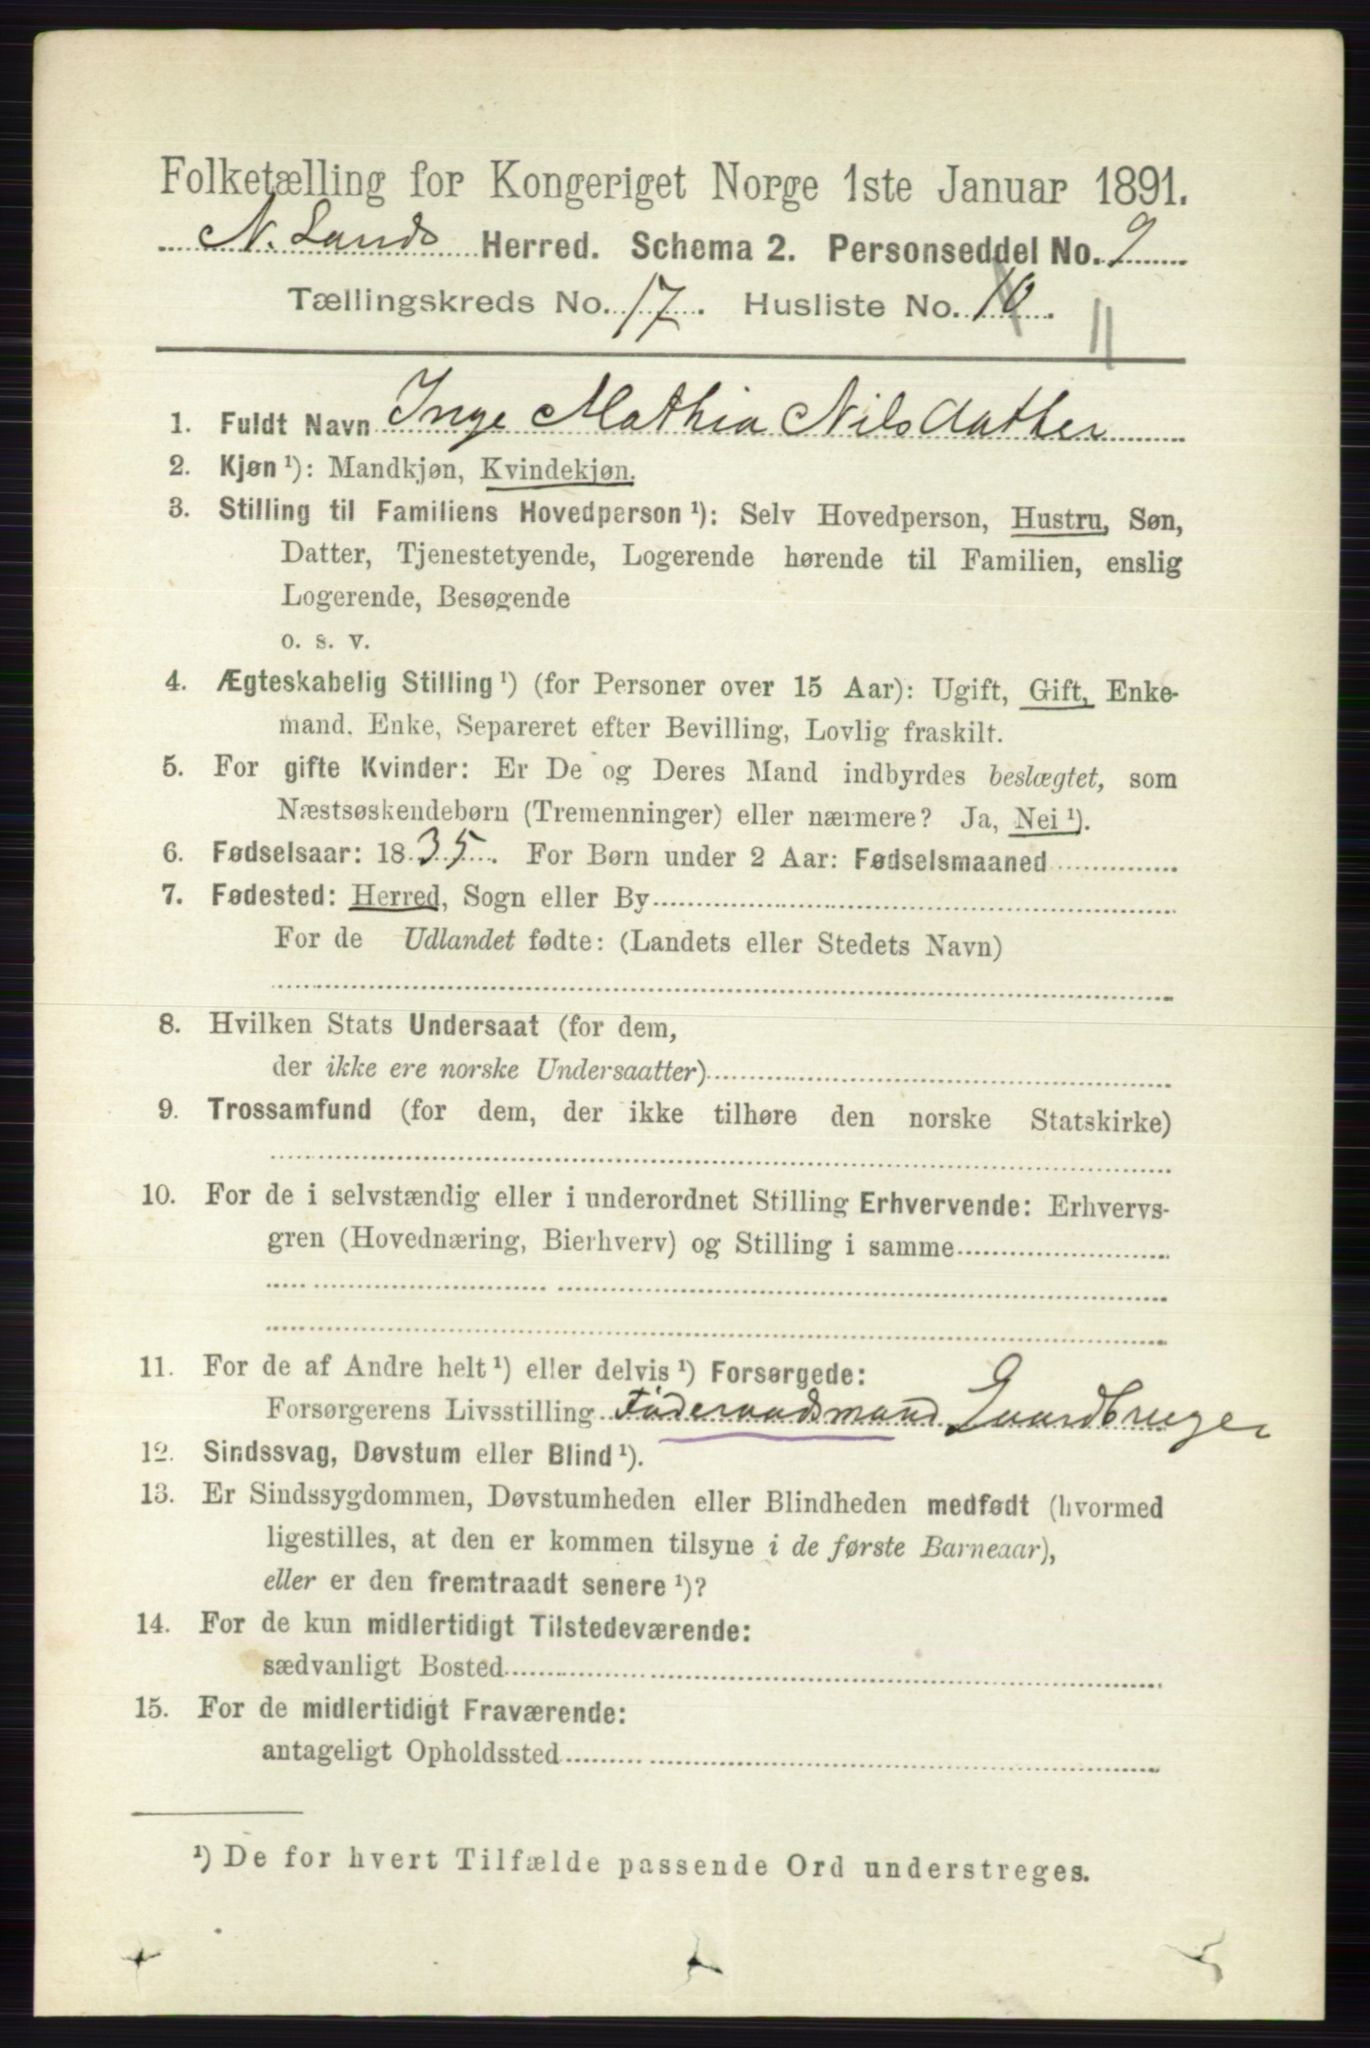 Folketælling for Kongeriget Norge 1ste Januar 1891.
N. Lands Herred. Schema 2. Personseddel No. 9
Tællingskreds No. 17. Husliste No. 10. 11
1. Fuldt Navn Inge Mathia Nilsdatter
2. Kjøn ¹): Mandkjøn, Kvindekjøn.
3. Stilling til Familiens Hovedperson ¹): Selv Hovedperson, Hustru, Søn,
Datter, Tjenestetyende, Logerende hørende til Familien, enslig
Logerende, Besøgende
o. s. v.
4. Ægteskabelig Stilling ¹) (for Personer over 15 Aar): Ugift, Gift, Enke-
mand, Enke, Separeret efter Bevilling, Lovlig fraskilt.
5. For gifte Kvinder: Er De og Deres Mand indbyrdes beslægtet, som
Næstsøskendebørn (Tremenninger) eller nærmere? Ja, Nei ¹).
6. Fødselsaar: 1835. For Børn under 2 Aar: Fødselsmaaned
7. Fødested: Herred, Sogn eller By
For de Udlandet fødte: (Landets eller Stedets Navn)
8. Hvilken Stats Undersaat (for dem,
der ikke ere norske Undersaatter)
9. Trossamfund (for dem, der ikke tilhøre den norske Statskirke)
10. For de i selvstændig eller i underordnet Stilling Erhvervende: Erhvervs-
gren (Hovednæring, Bierhverv) og Stilling i samme
11. For de af Andre helt ¹) eller delvis ¹) Forsørgede:
Forsørgerens Livsstilling Föderaadsmand Gaardbruger
12. Sindssvag, Døvstum eller Blind ¹).
13. Er Sindssygdommen, Døvstumheden eller Blindheden medfødt (hvormed
ligestilles, at den er kommen tilsyne i de første Barneaar),
eller er den fremtraadt senere ¹)?
14. For de kun midlertidigt Tilstedeværende:
sædvanligt Bosted
15. For de midlertidigt Fraværende:
antageligt Opholdssted
¹) De for hvert Tilfælde passende Ord understreges.